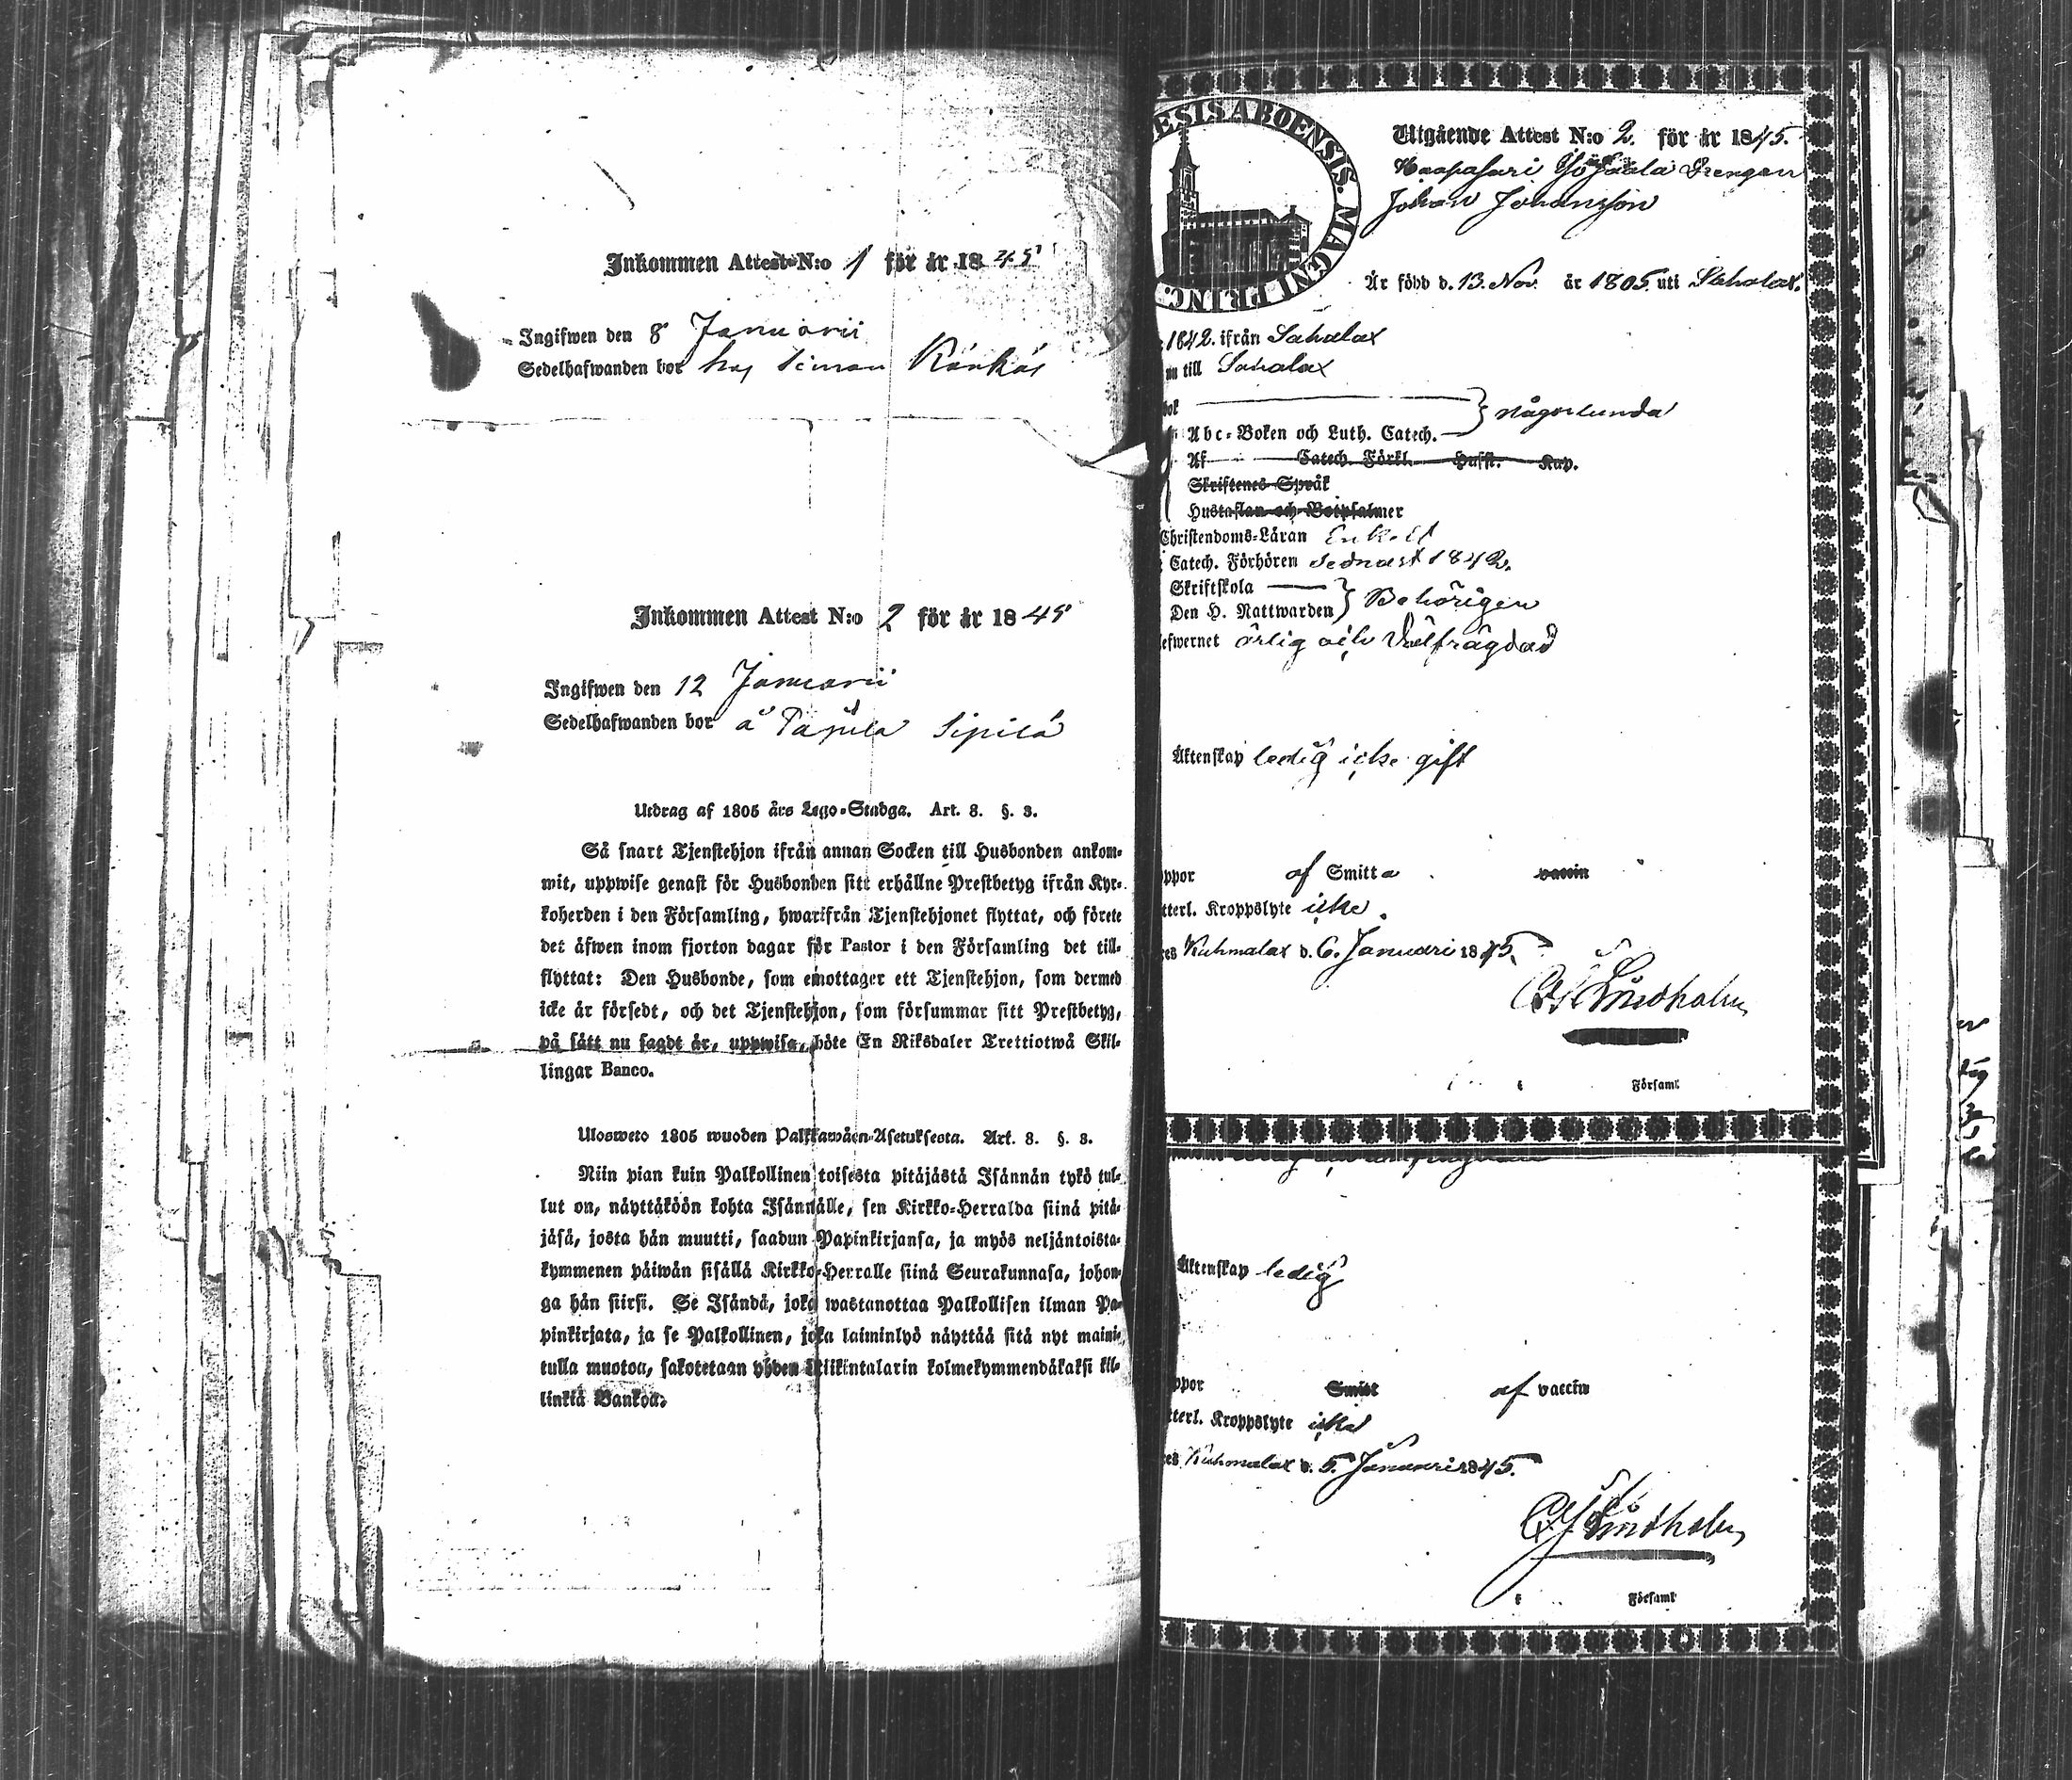 Inkommen Attest N:o 1 för år 1845
Ingifwen den 8 Januarii
Sedelhafwanden bor hos Simon
Inkommen Attest N:o 2 för år 1845
Ingifwen den 12 Januarii
Sedelhafwanden bor å Sipilä
Utdrag af 1805 års Lego-Stadga. Art. 8. §. 3.
Så snart Tjenstehjon ifrån annan Socken till Husbonden ankom-
mit, uppwise genast för Husbonden sitt erhållne Prestbetyg ifrån Kyr-
koherden i den Församling, hwarifrån Tjenstehjonet flyttat, och förete
det äfwen inom fjorton dagar för Pastor i den Församling det till-
flyttat: Den Husbonde, som emottager ett Tjenstehjon, som dermed
icke är försedt, och det Tjenstehjon, som försummar sitt Prestbetyg,
på sätt nu sagdt är, uppwisa, böte En Riksdaler Trettiotwå Skil-
lingar Banco.
Ulosweto 1805 wuoden Palkkawäen-Asetuksesta. Art. 8. §. 3.
Niin pian kuin Palkollinen toisesta pitäjästä Isännän tykö tul-
lut on, näyttäköön kohta Isännälle, sen Kirkko-Herralda siinä pitä-
jäsä, josta hän muutti, saadun Papinkirjansa, ja myös neljäntoista-
kymmenen päiwän sisällä Kirkko-Herralle siinä Seurakunnasa, johon-
ga hän siirsi. Se Isändä, joka wastanottaa Palkollisen ilman Pa-
pinkirjata, ja se Palkollinen, joka laiminlyö näyttää sitä nyt maini-
tulla muotoa, sakotetaan yhden Riikintalarin kolmekymmendäkaksi kil-
linkiä Bankoa.
ESIS ABOENSIS. MAGNI PRINC.
Utgående Attest N:o 2. för år 1845.
Haapasari Drengen
Johan Johansson
Är född d. 13. Nov. år 1805. uti Sahalax.
1842. ifrån Sahalax
till Sahalax
bok någorlunda
Abc-Boken och Luth. Catech.
Af Catech. Förkl. Husst. Kap.
Skriftenes Språk
Hustaflan och Botpsalmer
Christendoms-Läran Enkelt
Catech. Förhören sednast 1842.
Skriftskola
Den H. Nattwarden Behörigen
lefwernet ärlig och Välfrägdad
Äktenskap ledig icke gift
ppor af Smitta vaccin
tterl. Kroppslyte icke
res Kuhmalax d. 6. Januari 1845.
Lindholm
Församl
Äktenskap ledig
ppor Smitt af vaccin
tterl. Kroppslyte icke
res Kuhmalax d. 5. Januari 1845.
Lindholm
Församl